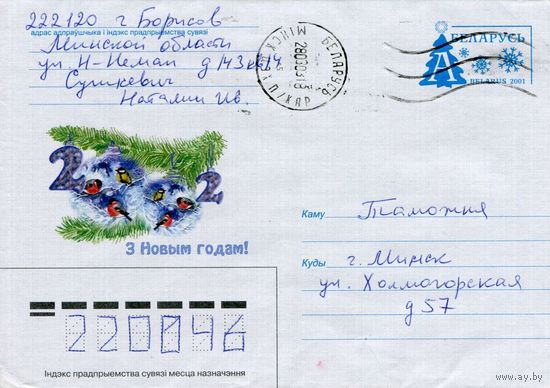 222120 г Борисов
адрас адпраўшчыка і індэкс прадпрыемства сувязі
Минской области
ул. Н-Неман д 143 кв 14
Сушкевич
Наталии Ив.
МІНСК
БЕЛАРУСЬ
БЕЛАРУСЬ
BELARUS 2001
2 2
З Новым годам!
Каму Таможня
Куды г. Минск
ул. Холмогорская
д 57
220046
Індэкс прадпрыемства сувязі месца назначэння
www.ay.by